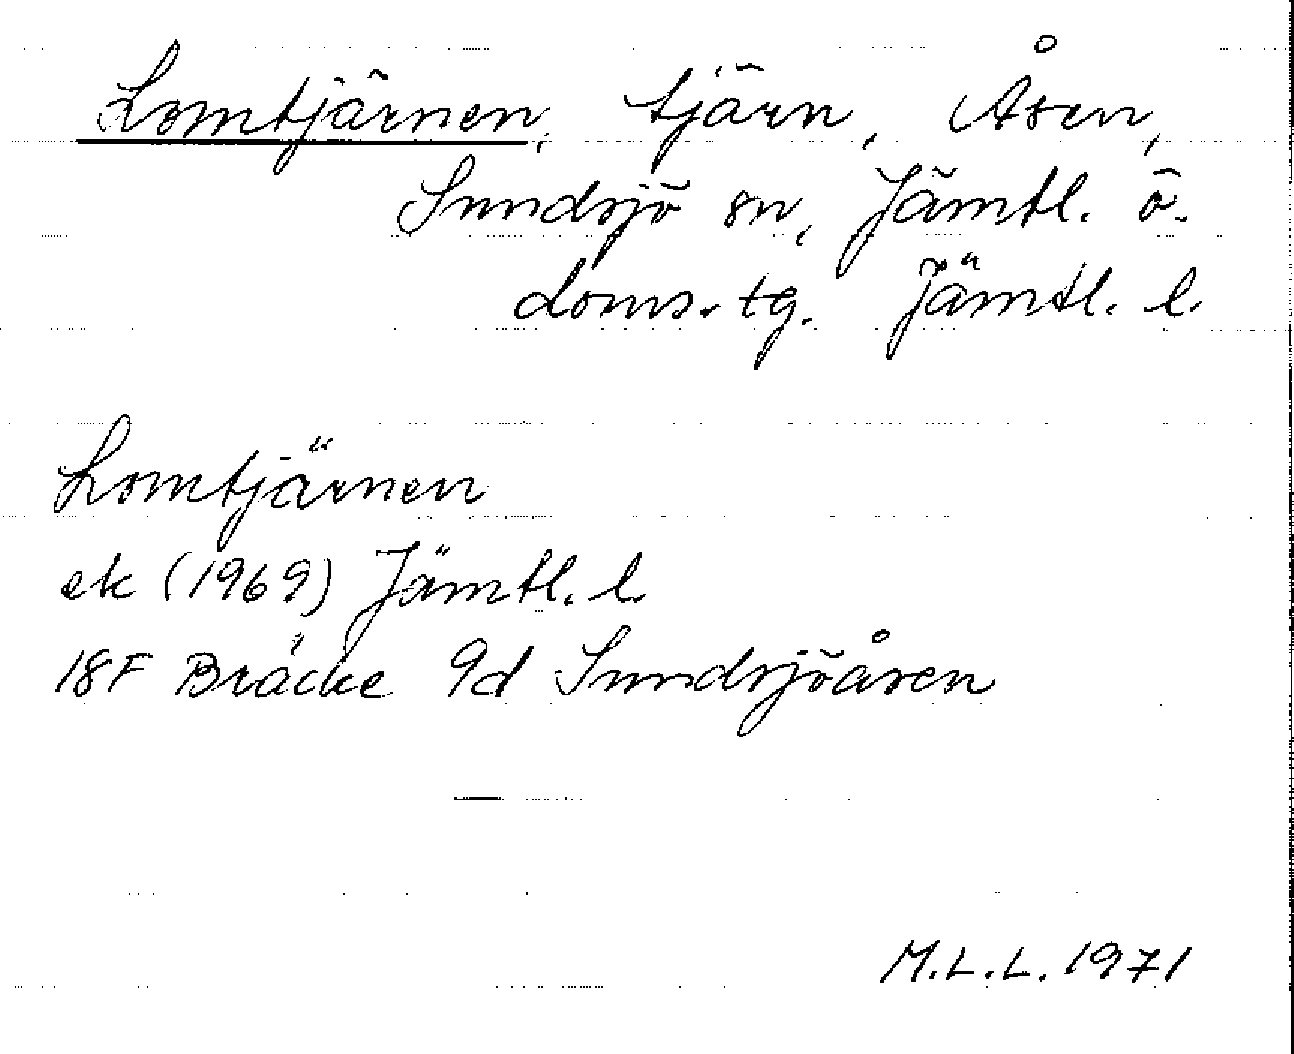 Lomtjärnen, tjärn, Åsen,
Sundsjö sn, Jämtl. ö.
doms.tg. Jämtl. l.
Lomtjärnen
ek (1969) Jämtl. l.
18F Bräcke 9d Sundsjöåsen
M.L.L. 1971